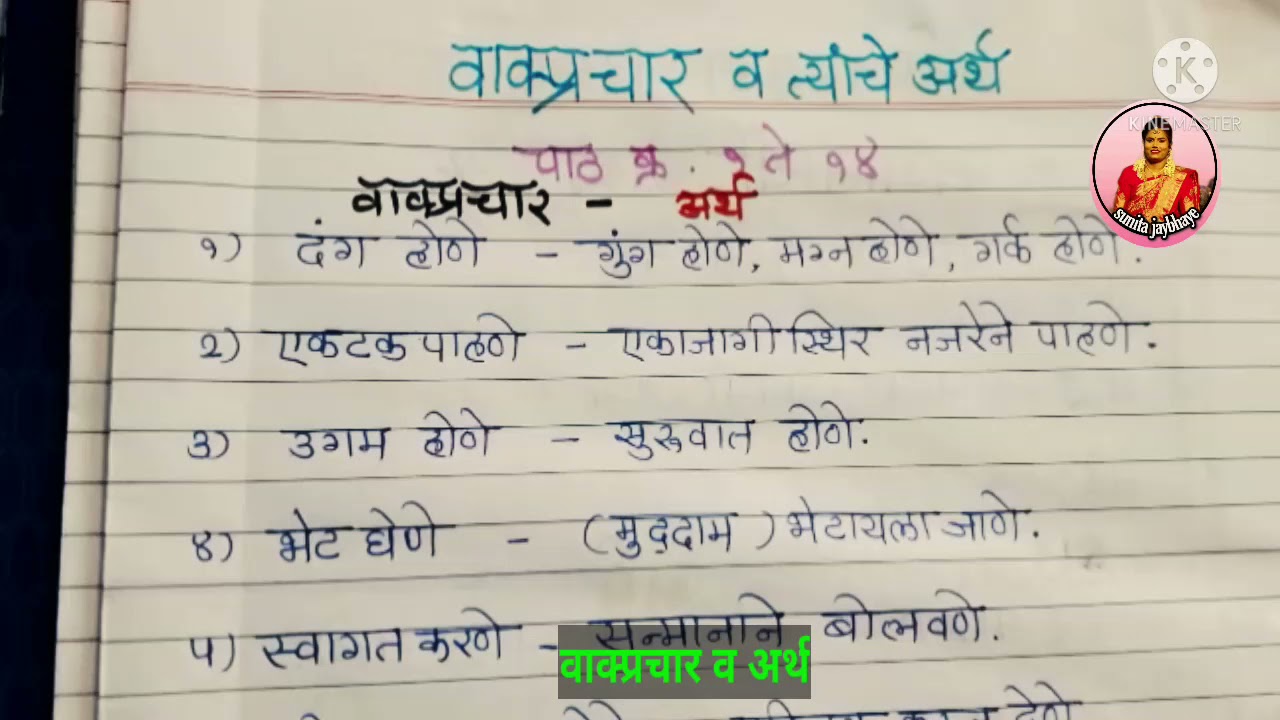 वाक्प्रचार व त्यांचे अर्थ
KINEMASTER
पाठ क्र. १ ते १४
वाक्प्रचार - अर्थ
sunita jaybhaye
१) दंग होणे - गुंग होणे, मग्न होणे, गर्क होणे.
२) एकटक पाहणे - एकाजागी स्थिर नजरेने पाहणे.
३) उगम होणे - सुरुवात होणे.
४) भेट घेणे - (मुद्दाम) भेटायला जाणे.
५) स्वागत करणे - सन्मानाने बोलवणे.
वाक्प्रचार व अर्थ